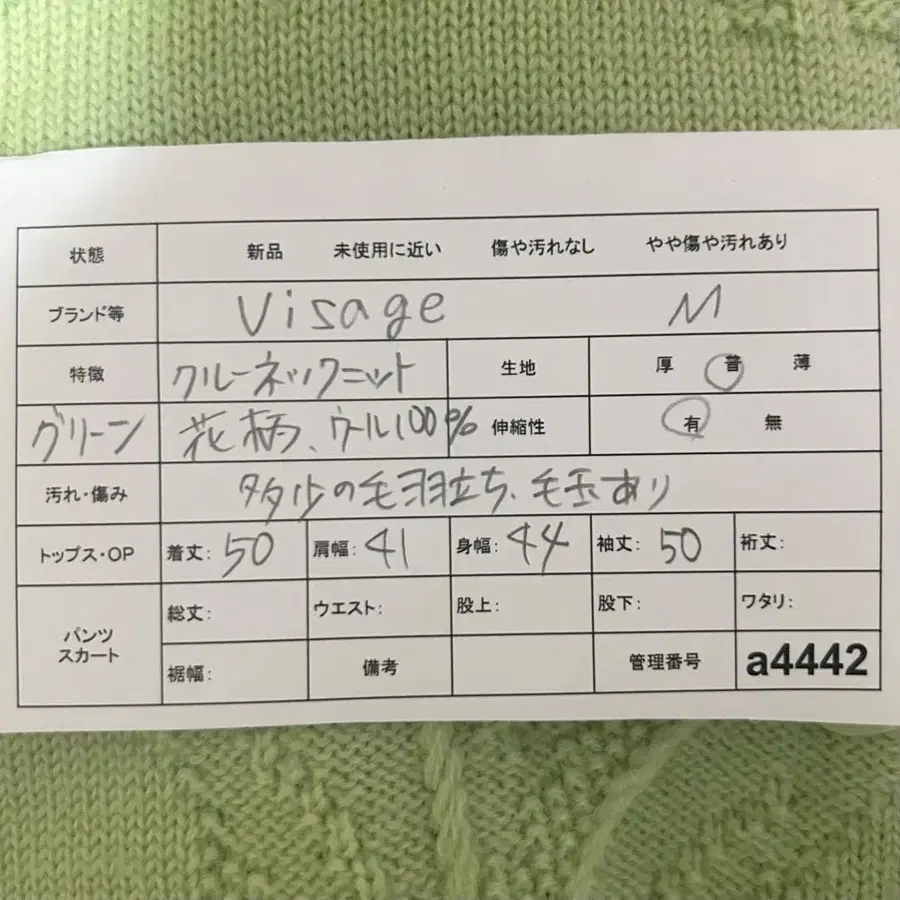 状態 新品 未使用に近い 傷や汚れなし やや傷や汚れあり
ブランド等 Visage M
特徴 クルーネックニット 生地 厚 普 薄
グリーン 花柄、ウール100% 伸縮性 有 無
汚れ・傷み 多少の毛羽立ち、毛玉あり
トップス・OP 着丈: 50 肩幅: 41 身幅: 44 袖丈: 50 裄丈:
パンツ スカート 総丈: ウエスト: 股上: 股下: ワタリ:
裾幅: 備考 管理番号 a4442